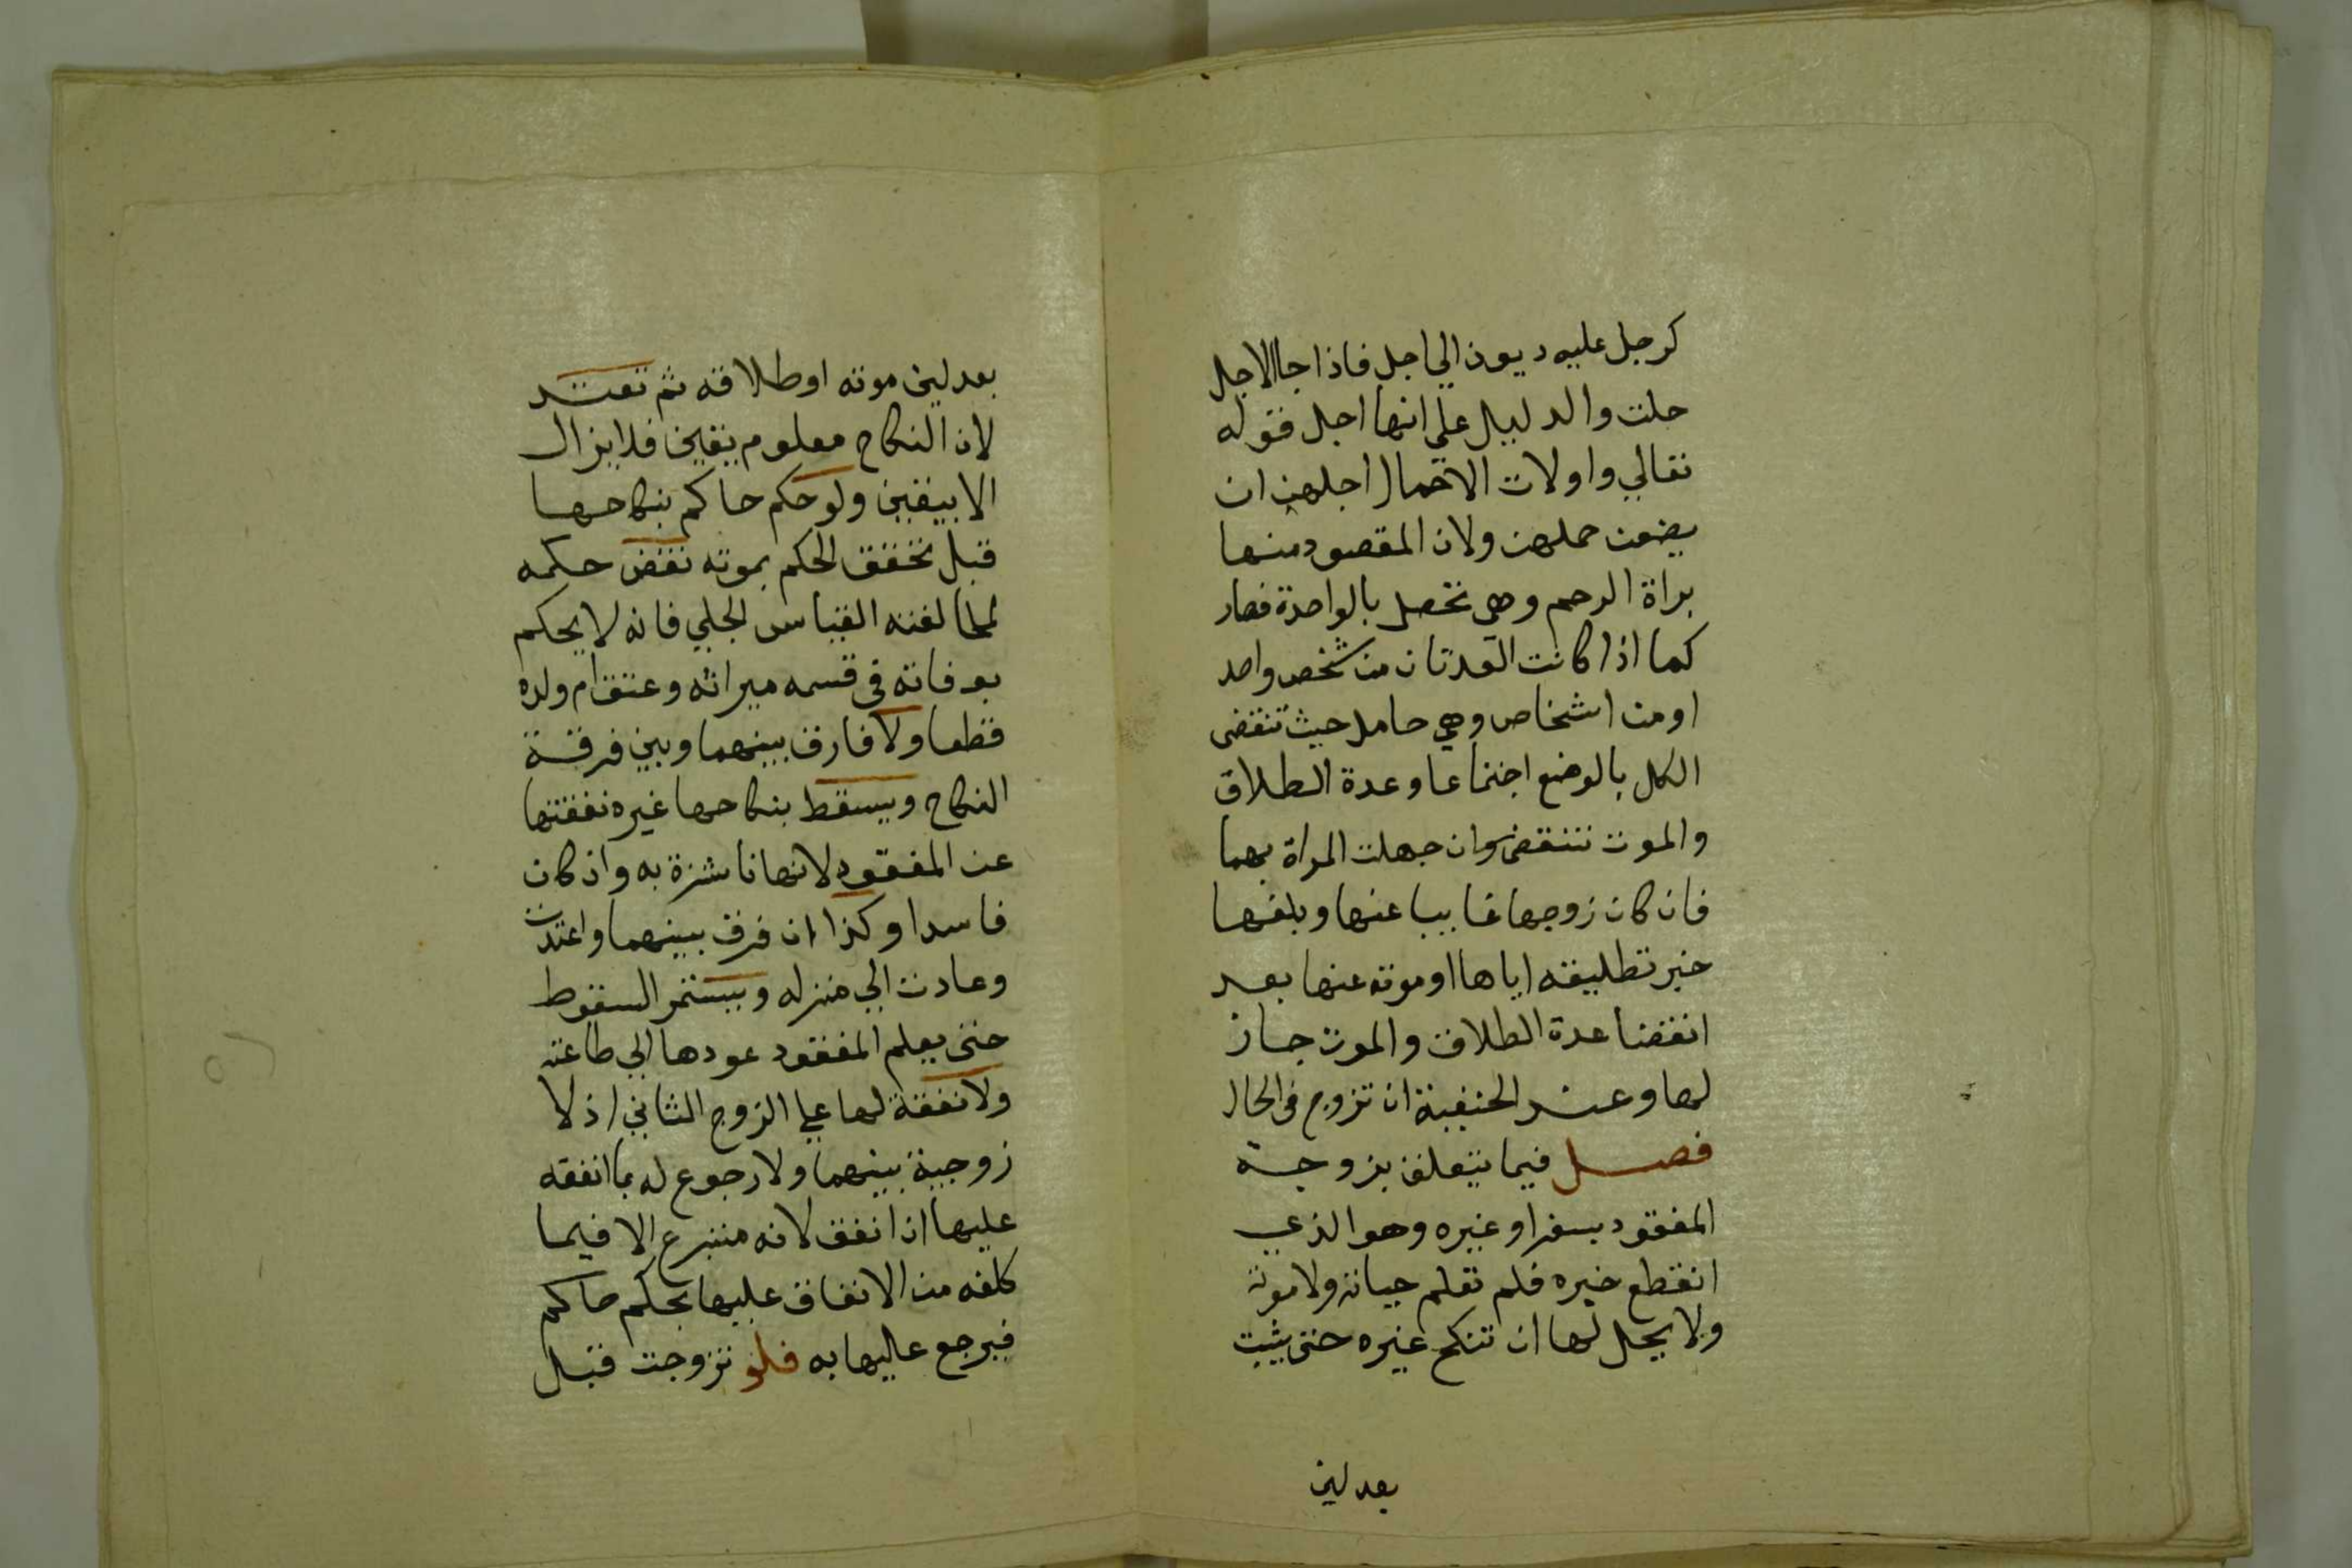 كرجل عليه ديون الي اجل فاذا جا الاجل
حلت والدليل علي انها اجل فقوله
تعالي واولات الاحمال اجلهن ان
يضعن حملهن ولان المقصود منها
براة الرحم وهي تحصل بالواحدة فصار
كما اذا كانت العدتان من شخص واحد
او من اشخاص وهي حامل حيث تنقضي
الكل بالوضع اجتماعا وعدة الطلاق
والموت تنقضي وان جهلت المراة بهما
فان كان زوجها غايبا عنها وبلغها
خبر تطليقه اياها او موته عنها بعد
انقضا عدة الطلاق والموت جاز
لها وعند الحنفية ان تزوج في الحال
فصل فيما يتعلق بزوجة
المفقود بسفر او غيره وهو الذي
انقطع خبره فلم تعلم حياته ولا موته
ولا يحل لها ان تنكح غيره حتى يثبت
بعدلين
بعدلين موته او طلاقه ثم تعتد
لان النكاح معلوم بيقين فلا يزال
الا بيقين ولو حكم حاكم بنكاحها
قبل تحقق الحكم بموته نقض حكمه
لمخالفته القياس الجلي فانه لا يحكم
بوفاته في قسمه ميراثه وعتق ام ولده
قطعا ولا فارق بينهما وبين فرقة
النكاح ويسقط بنكاحها غيره نفقتها
عن المفقود لانها ناشزة به وان كان
فاسدا وكذا ان فرق بينهما واعتدت
وعادت الي منزله ويستمر السقوط
حتى يعلم المفقود عودها الي طاعته
ولا نفقة لها علي الزوج الثاني اذ لا
زوجية بينهما ولا رجوع له بما انفقه
عليها ان انفق لانه متبرع الا فيما
كلفه من الانفاق عليها بحكم حاكم
فيرجع عليها به فلو تزوجت قبل